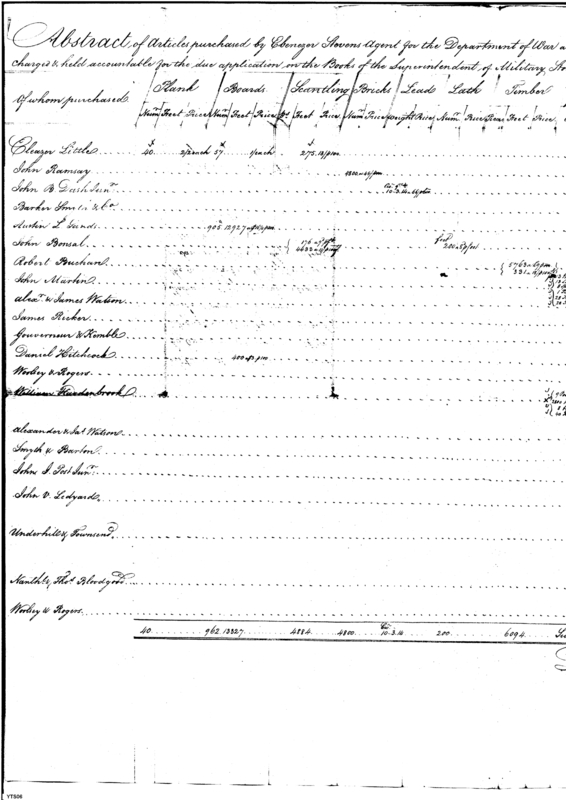 Abstract of Articles purchased by Ebenezer Stevens Agent for the Department of War a
charged & held accountable for the due application on the Books of the Superintendent of Military Sto
Of whom purchased Plank Boards Scantling Bricks Lead Lath Timber
Numr Feet Price Numr Feet Price Feet Price Numr Price Weight Price Numr Price Feet Price
Eleazer Little 40 57 1/each 275
John Ramsay
John B Dash Junr 10.3.14
Barker Smith & Co
Austin L Sands 905 12927
John Bonsal 176 4633 200
Robert Buchan 5763 331
John Martin
Alexr & James Watson
James Ricker
Gouverneur & Kemble
Daniel Hitchcock 400
Woolsey & Rogers
William Hardenbrook
Alexander & Jas Watson
Smyth & Barton
John J. Post Junr
John V. Ledyard
Underhill & Townsend
Nathl & Thos Bloodgood
Woolsey & Rogers
40 962 13327 4884 4800 10.3.14 200 6094
YTS06